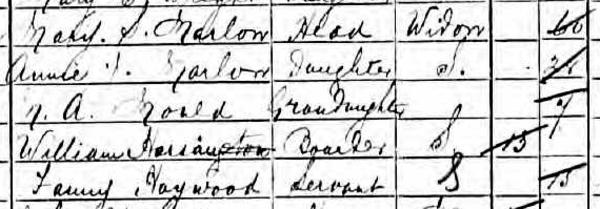 Mary S. Marlow Head Widow 60
Annie Marlow Daughter S.
N. A. Mould Grandaughter 7
William Harrington Boarder S 13
Fanny Haywood Servant S 15